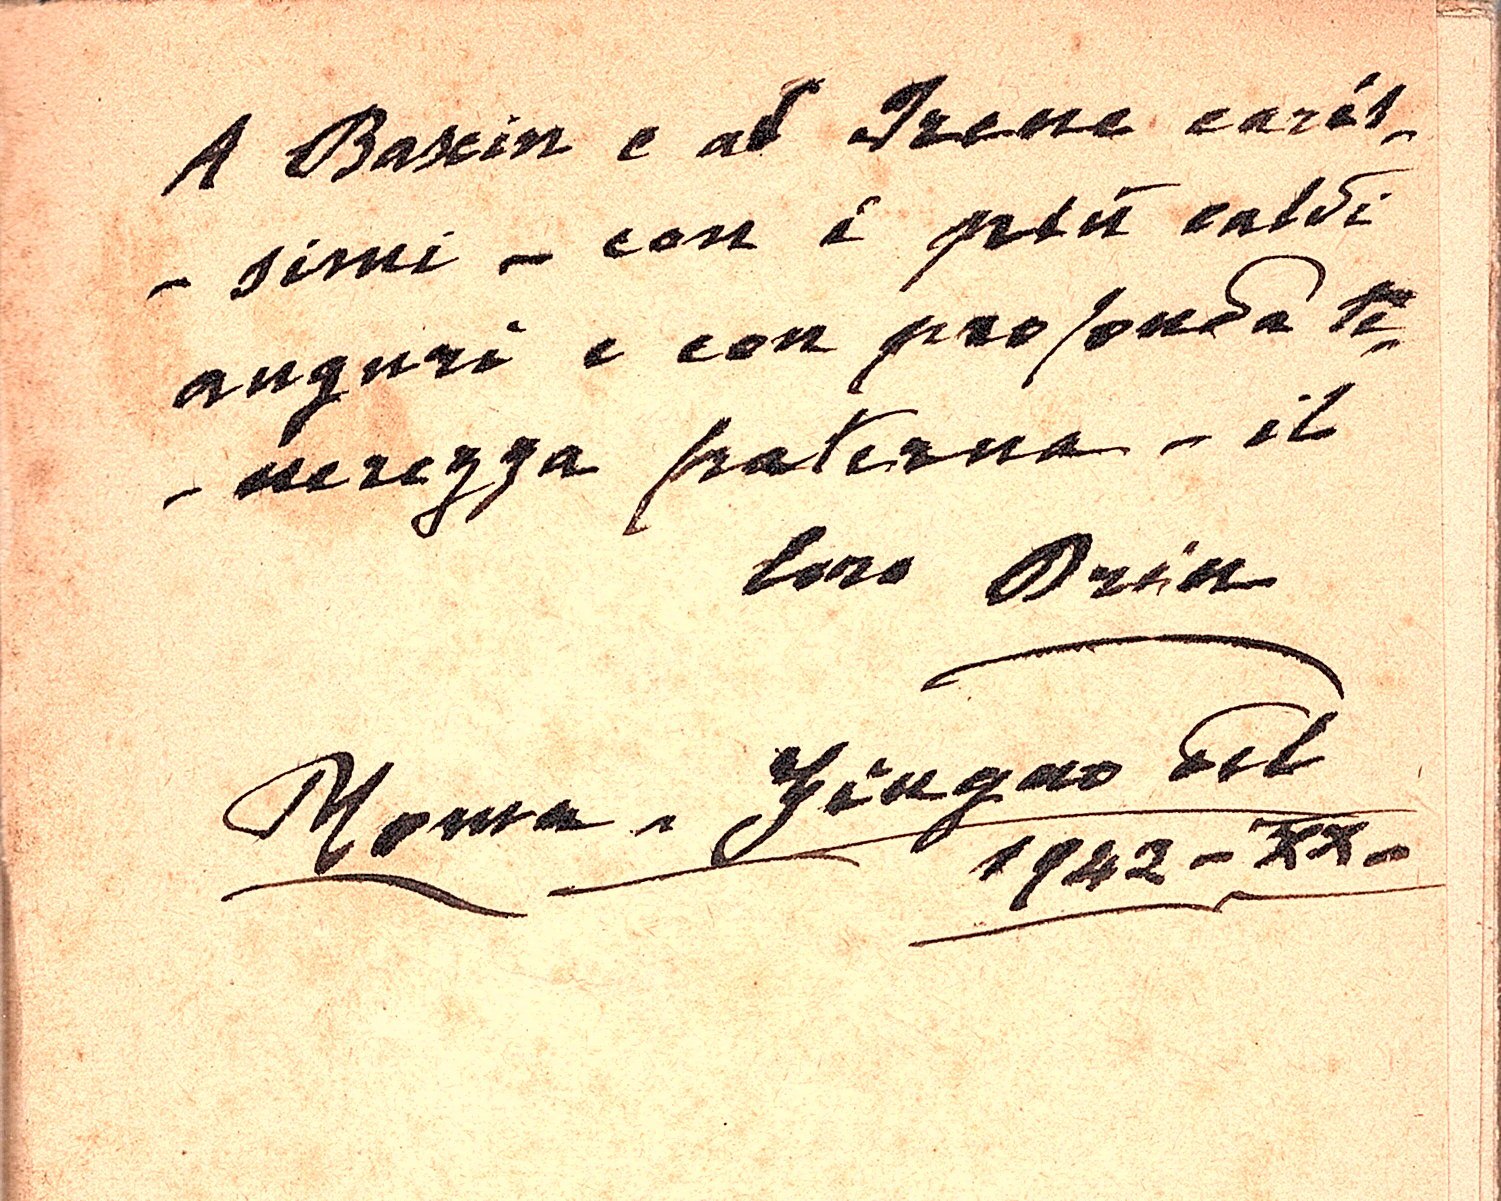 A Bascin e ad Irene caris-
-simi - con i più caldi
auguri e con profonda te-
-nerezza fraterna - il
loro Drin
Roma - Giugno del
1942 - XX -